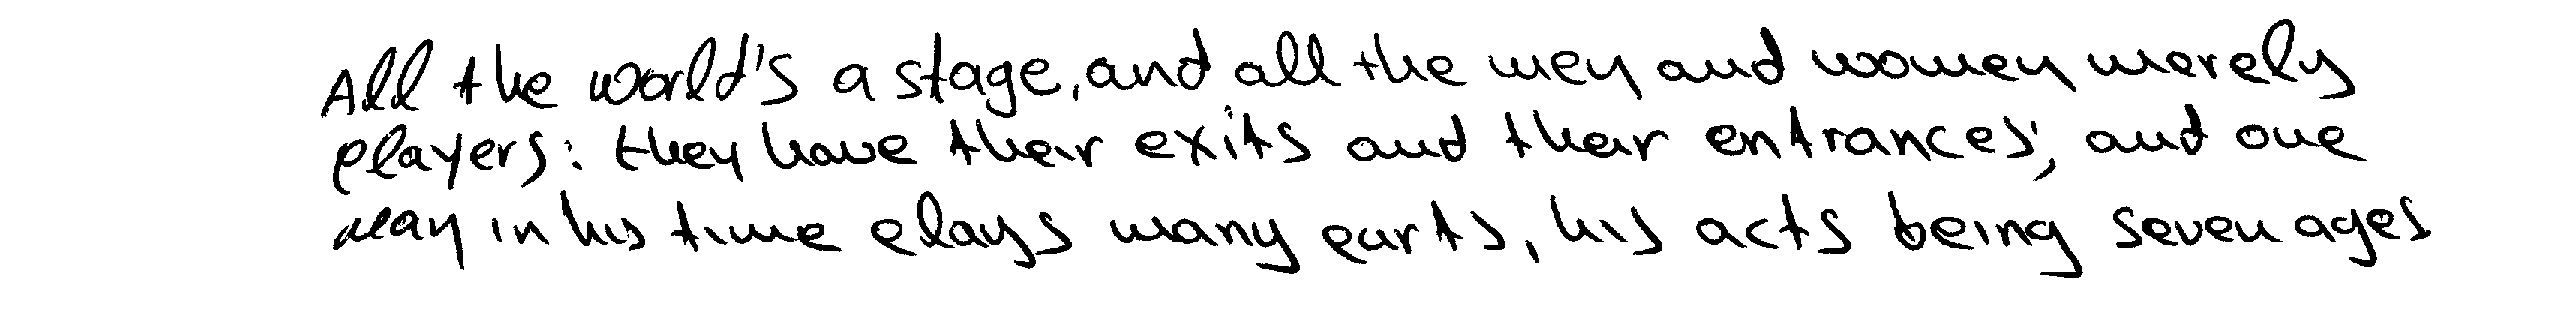 All the world's a stage, and all the men and women merely
players: they have their exits and their entrances; and one
man in his time plays many parts, his acts being seven ages